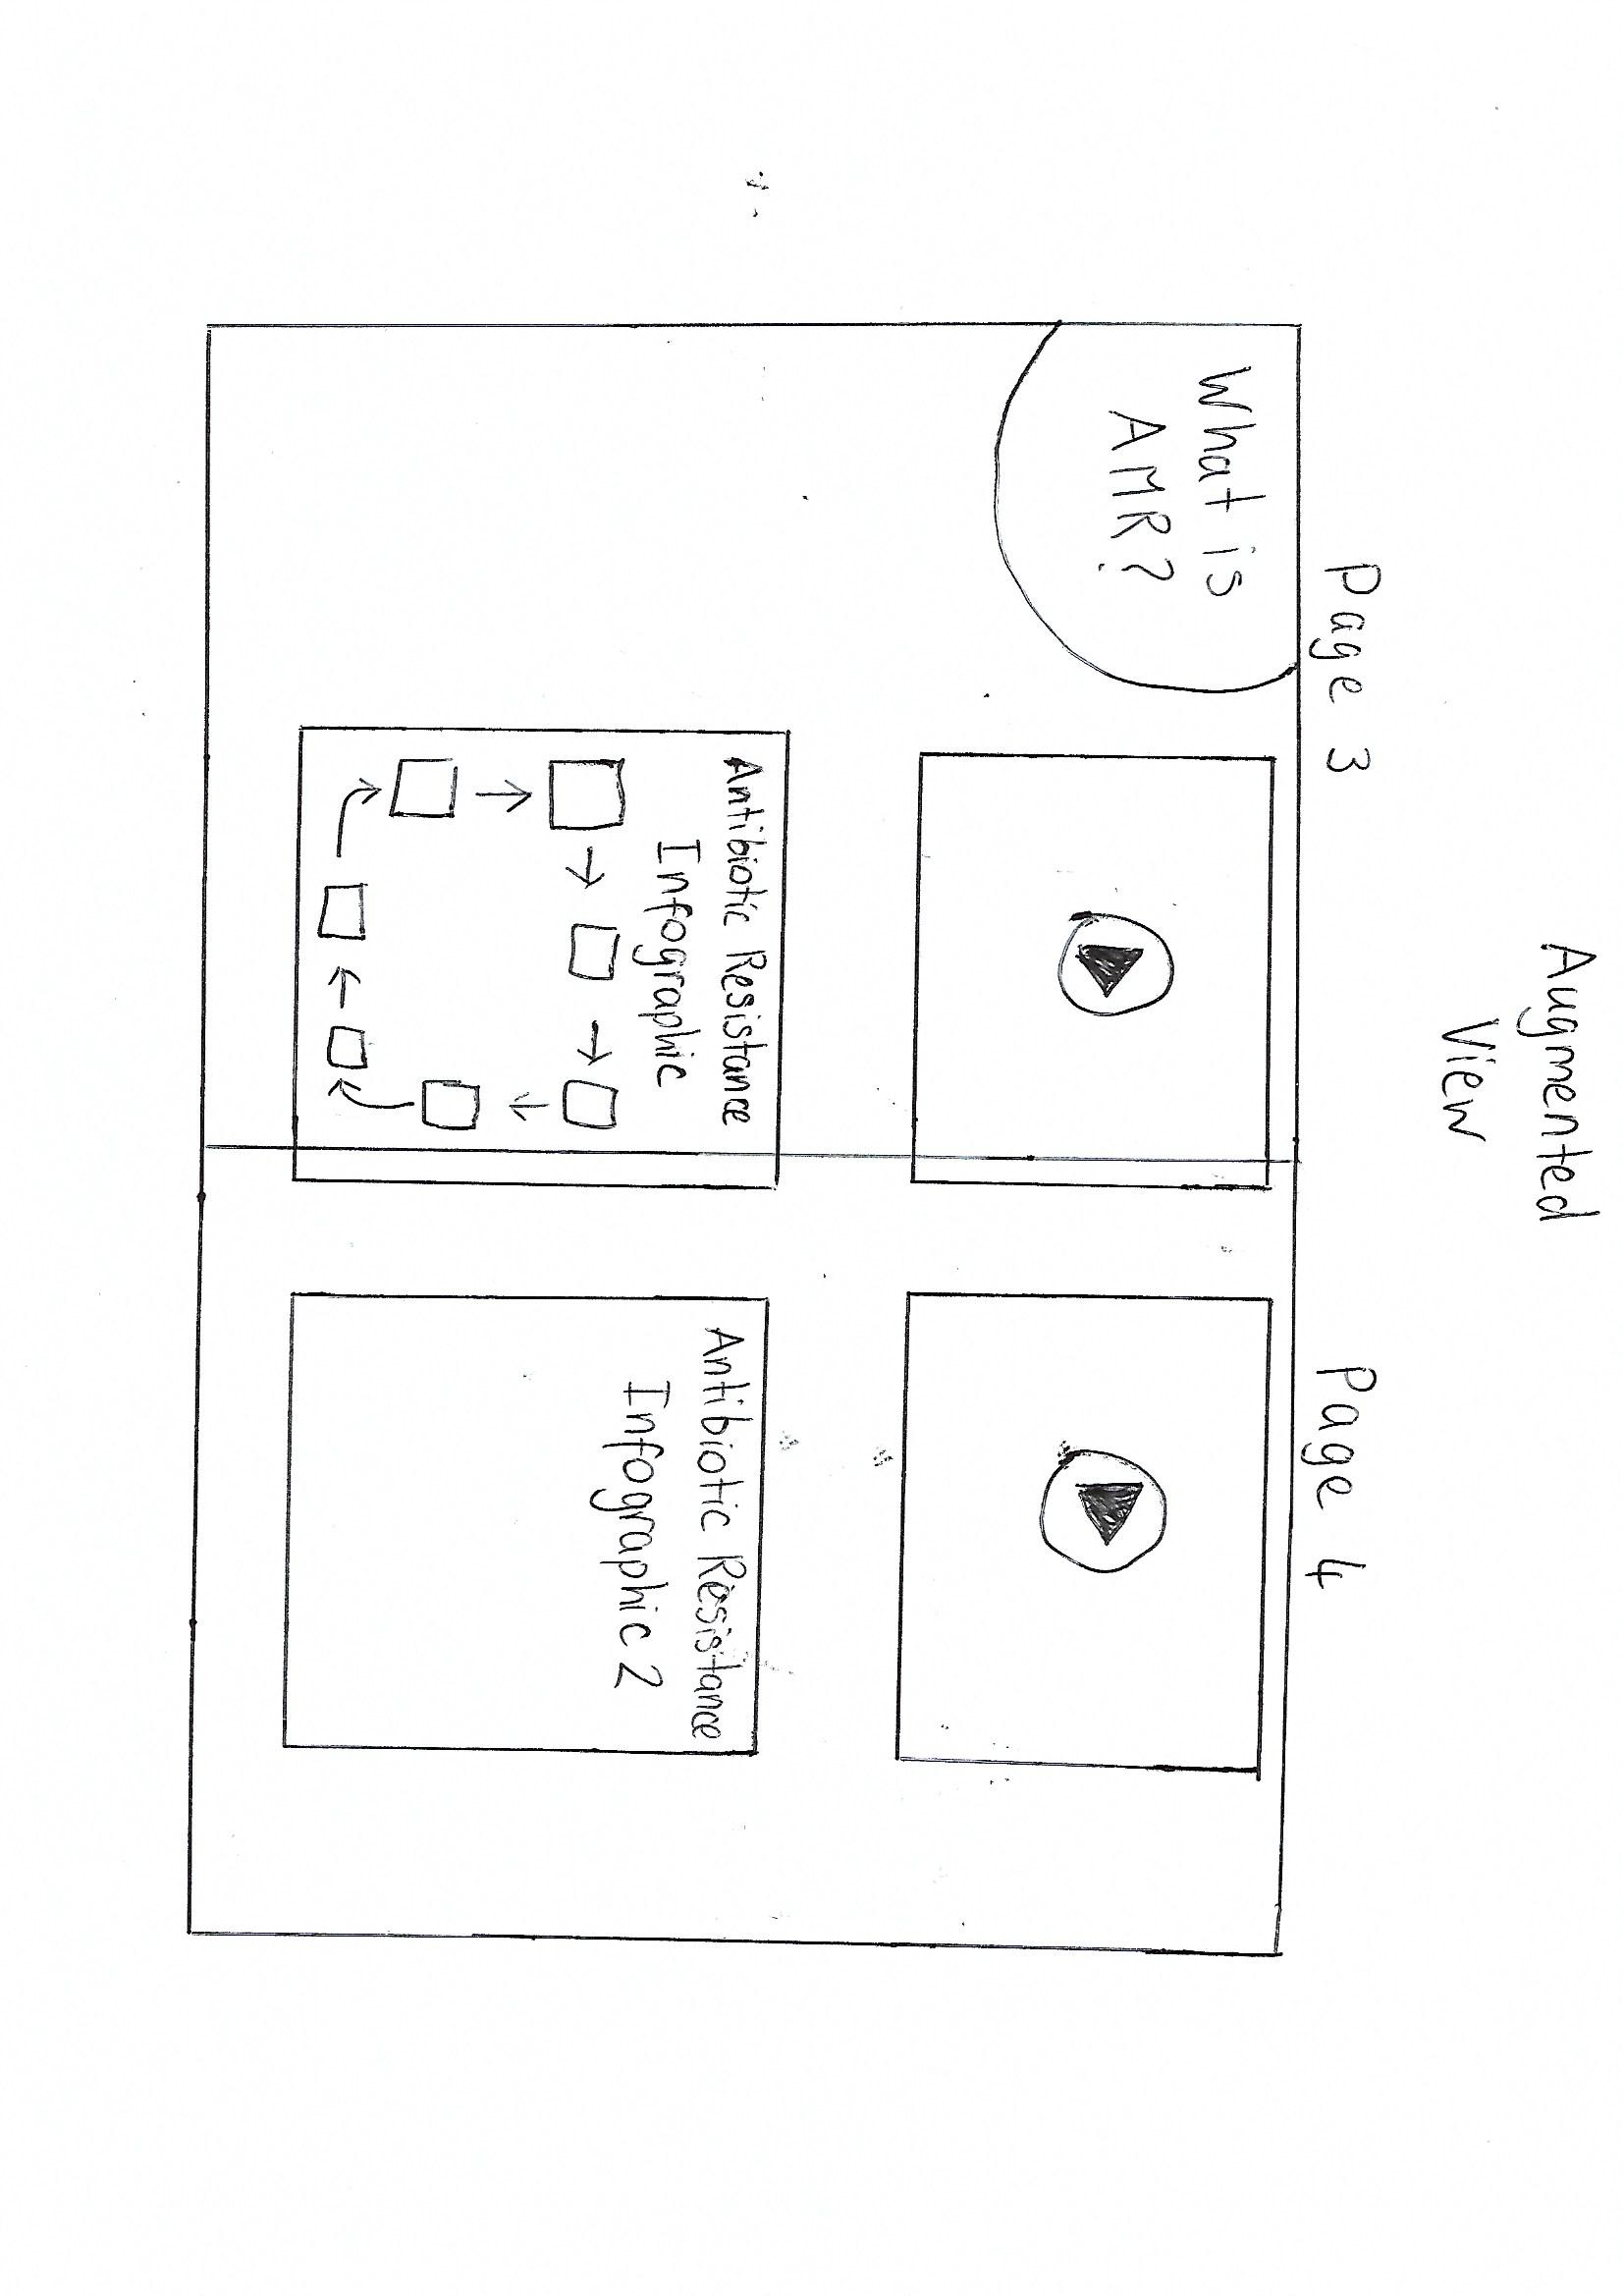 Augmented
View
Page 3
Page 4
What is
AMR?
Antibiotic Resistance
Infographic
Antibiotic Resistance
Infographic 2